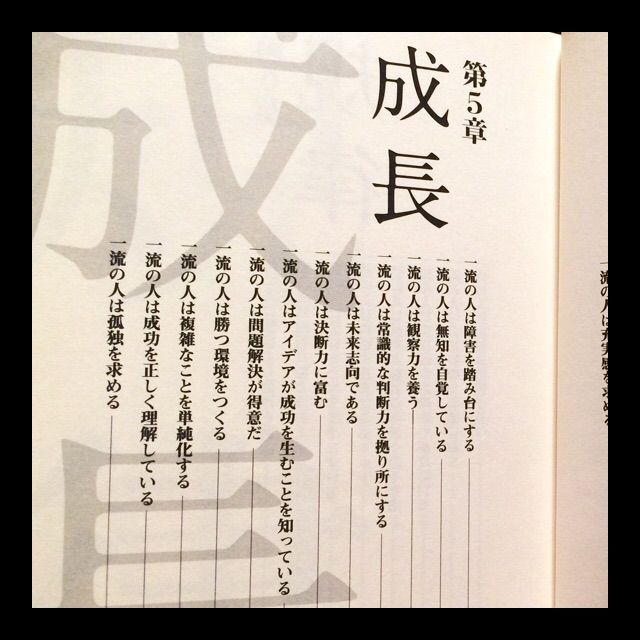 第5章
成長
一流の人は障害を踏み台にする
一流の人は無知を自覚している
一流の人は観察力を養う
一流の人は常識的な判断力を拠り所にする
一流の人は未来志向である
一流の人は決断力に富む
一流の人はアイデアが成功を生むことを知っている
一流の人は問題解決が得意だ
一流の人は勝つ環境をつくる
一流の人は複雑なことを単純化する
一流の人は成功を正しく理解している
一流の人は孤独を求める
成長
一流の人は充実感を求める